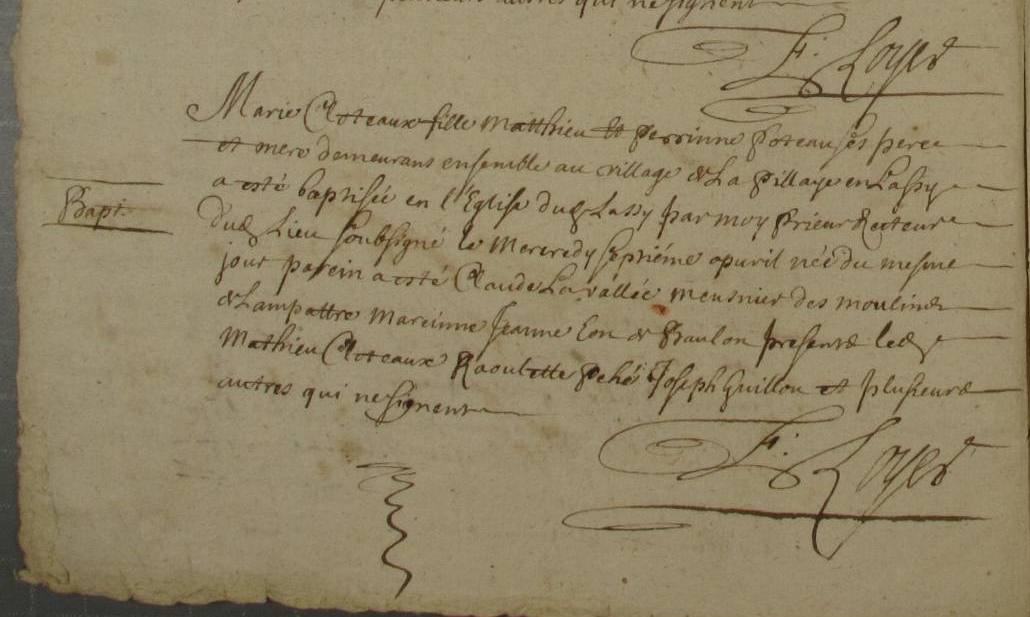 plusieurs autres qui ne signent
F. Loyer
Marie Cloteaux fille Matthieu et Perrinne Poteau ses pere
et mere demeurans ensemble au village de La Pillaye en Lassy
Bapt.
a esté baptisée en l'Eglise dud Lassy par moy Prieur Recteur
dud Lieu soubsigné le Mercredy septiéme apuril née du mesme
jour parein a esté Claude La vallée meusnier des moulins
de Lampattre mareinne Jeanne Eon de Baulon presents led
Mathieu Cloteaux Raoulette Pehé Joseph Guillou et plusieurs
autres qui ne signent
F. Loyer